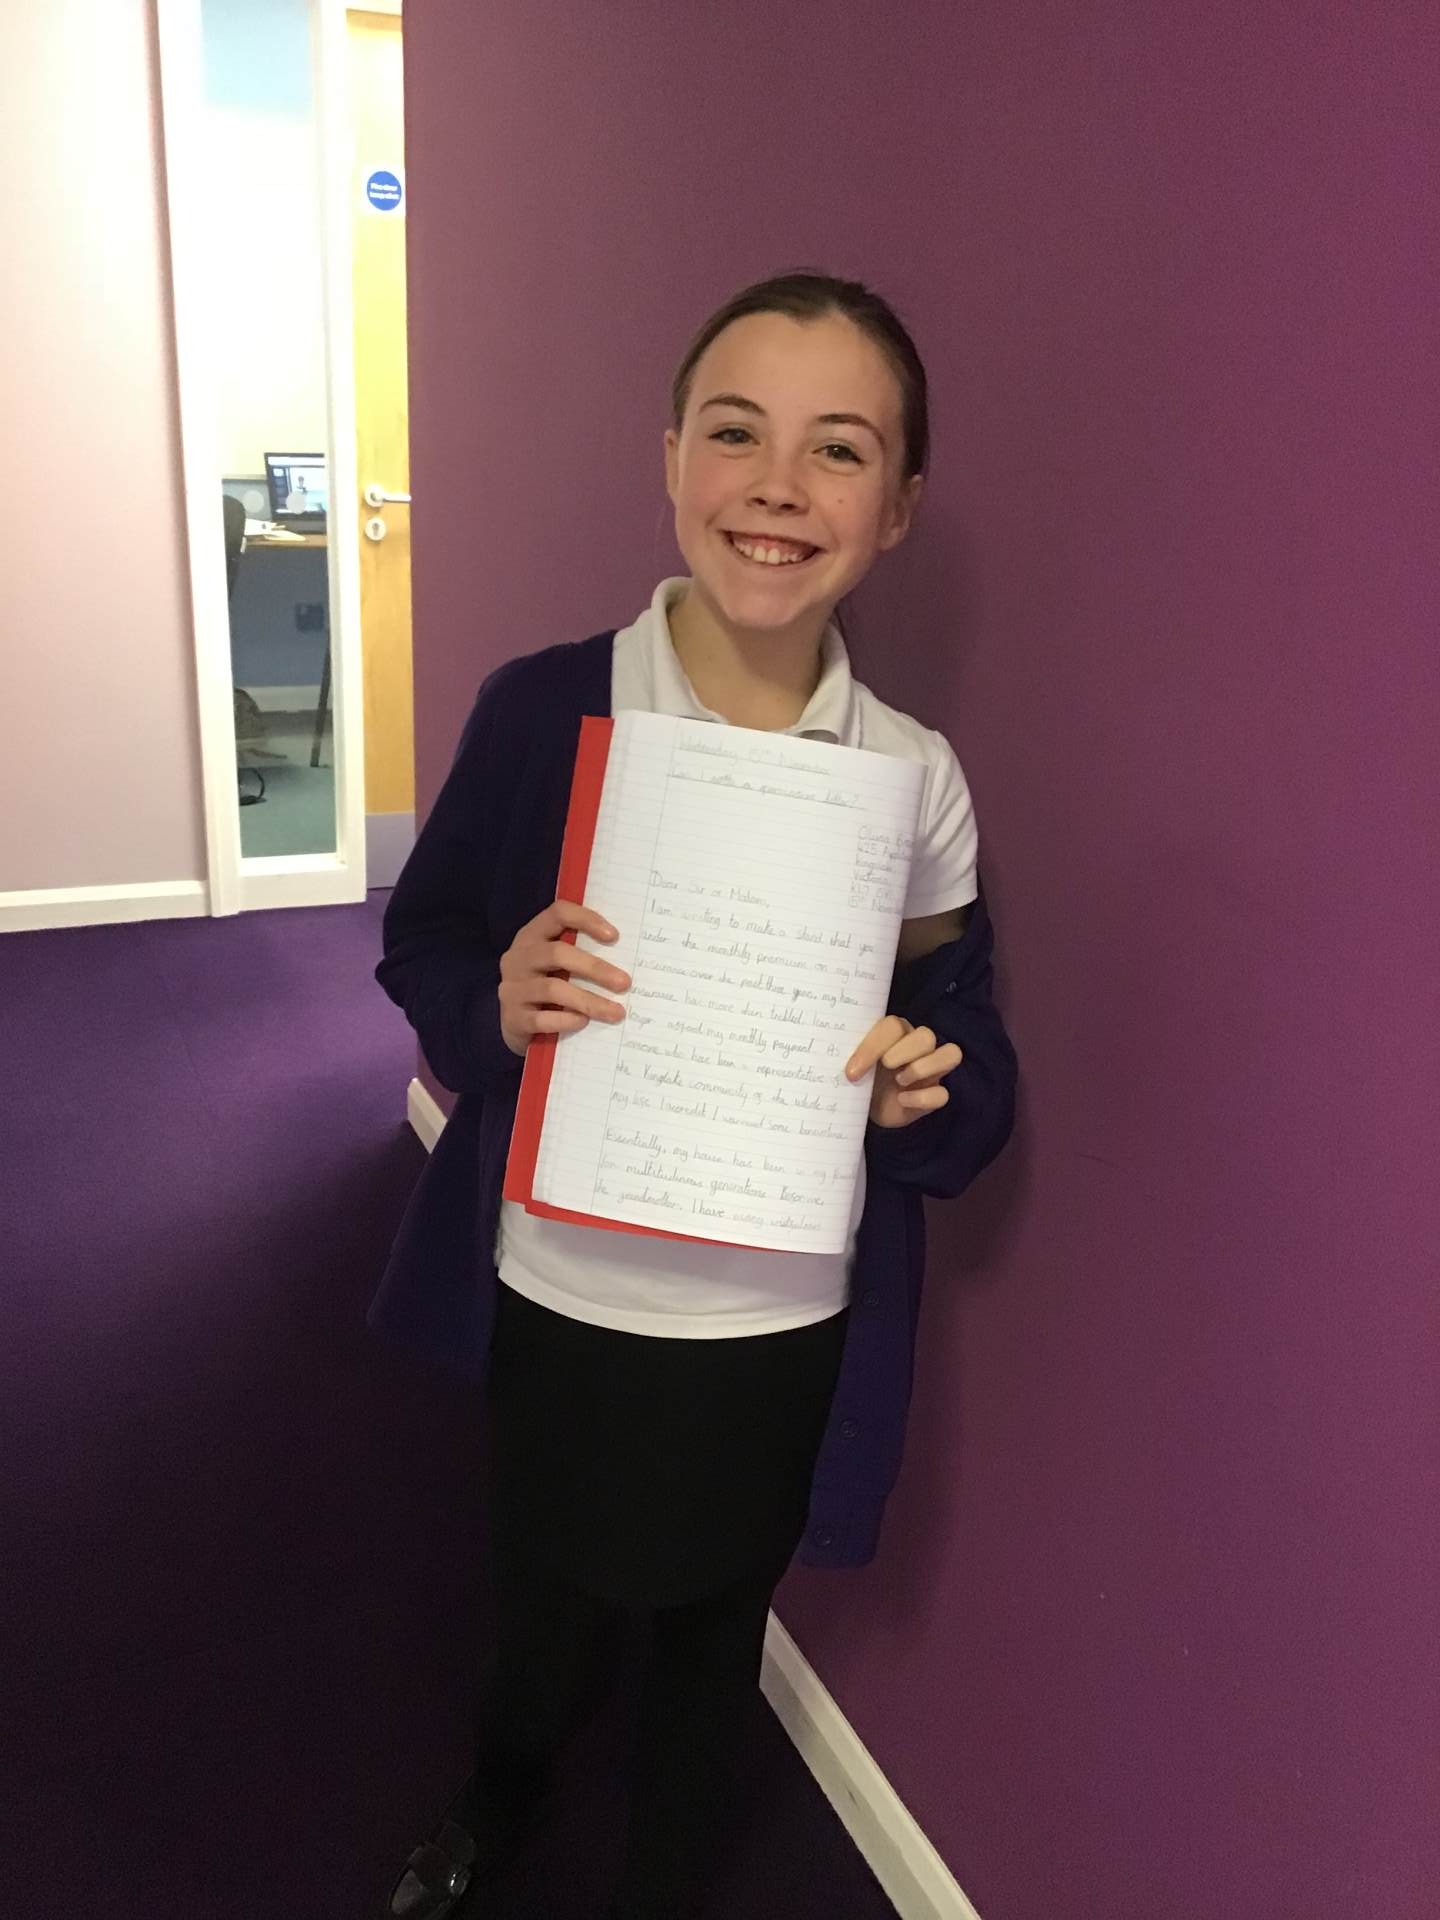 Fire door
keep shut
Wednesday 15th November
Can I write a persuasive letter?
Olivia
425
Kinglake
Victoria,
15th Novem
Dear Sir or Madam,
I am writing to make a stand that you
under the monthly premium on my home
insurance over the past three years, my home
insurance has more than trebled. I can no
longer afford my monthly payment. As
someone who has been a representative of
the Kinglake community of the whole of
my life I accredit I warrant some
Essentially, my house has been in my
for multitudinous generations. Before me,
the grandmother. I have many